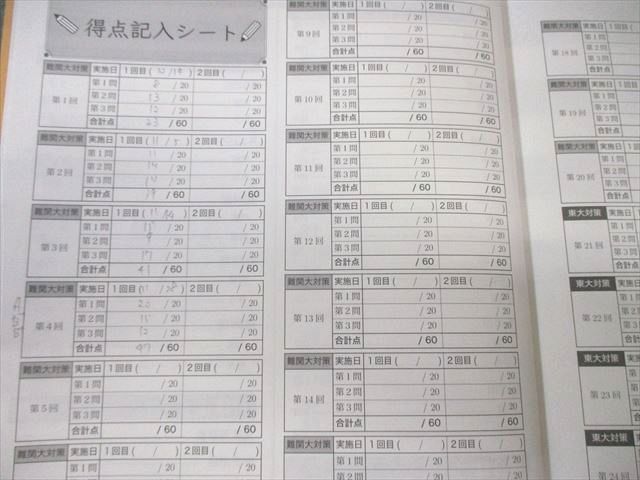 得点記入シート
難関大対策 実施日 1回目( 10/19 ) 2回目( / )
第1回 第1問 8 /20 /20
第2問 13 /20 /20
第3問 /20 /20
合計点 /60 /60
難関大対策 実施日 1回目( 11/5 ) 2回目( / )
第2回 第1問 11 /20 /20
第2問 14 /20 /20
第3問 /20 /20
合計点 /60 /60
難関大対策 実施日 1回目( 11/14 ) 2回目( / )
第3回 第1問 15 /20 /20
第2問 9 /20 /20
第3問 17 /20 /20
合計点 41 /60 /60
難関大対策 実施日 1回目( 11/28 ) 2回目( / )
第4回 第1問 20 /20 /20
第2問 15 /20 /20
第3問 12 /20 /20
合計点 47 /60 /60
難関大対策 実施日 1回目( / ) 2回目( / )
第5回 第1問 /20 /20
第2問 /20 /20
第3問 /20 /20
合計点 /60 /60
難関大対策 実施日 1回目( / ) 2回目( / )
第1問 /20 /20
第9回 第1問 /20 /20
第2問 /20 /20
第3問 /20 /20
合計点 /60 /60
難関大対策 実施日 1回目( / ) 2回目( / )
第10回 第1問 /20 /20
第2問 /20 /20
第3問 /20 /20
合計点 /60 /60
難関大対策 実施日 1回目( / ) 2回目( / )
第11回 第1問 /20 /20
第2問 /20 /20
第3問 /20 /20
合計点 /60 /60
難関大対策 実施日 1回目( / ) 2回目( / )
第12回 第1問 /20 /20
第2問 /20 /20
第3問 /20 /20
合計点 /60 /60
難関大対策 実施日 1回目( / ) 2回目( / )
第13回 第1問 /20 /20
第2問 /20 /20
第3問 /20 /20
合計点 /60 /60
難関大対策 実施日 1回目( / ) 2回目( / )
第14回 第1問 /20 /20
第2問 /20 /20
第3問 /20 /20
合計点 /60 /60
難関大対策 実施日 1回目( / ) 2回目( / )
第1問 /20 /20
第2問 /20 /20
難関大対策 実施日
第18回 第1問
第2問
第3問
合計点
難関大対策 実施日 1回
第19回 第1問
第2問
第3問
合計点
難関大対策 実施日
第20回 第1問
第2問
第3問
合計点
東大対策 実施日
第21回 第1問
第2問
第3問
合計点
東大対策 実施日
第22回 第1問
第2問
第3問
合計点
東大対策 実施日
第23回 第1問
第2問
第3問
合計点
東大対策 実施日
第24回 第1問
第2問
第3問